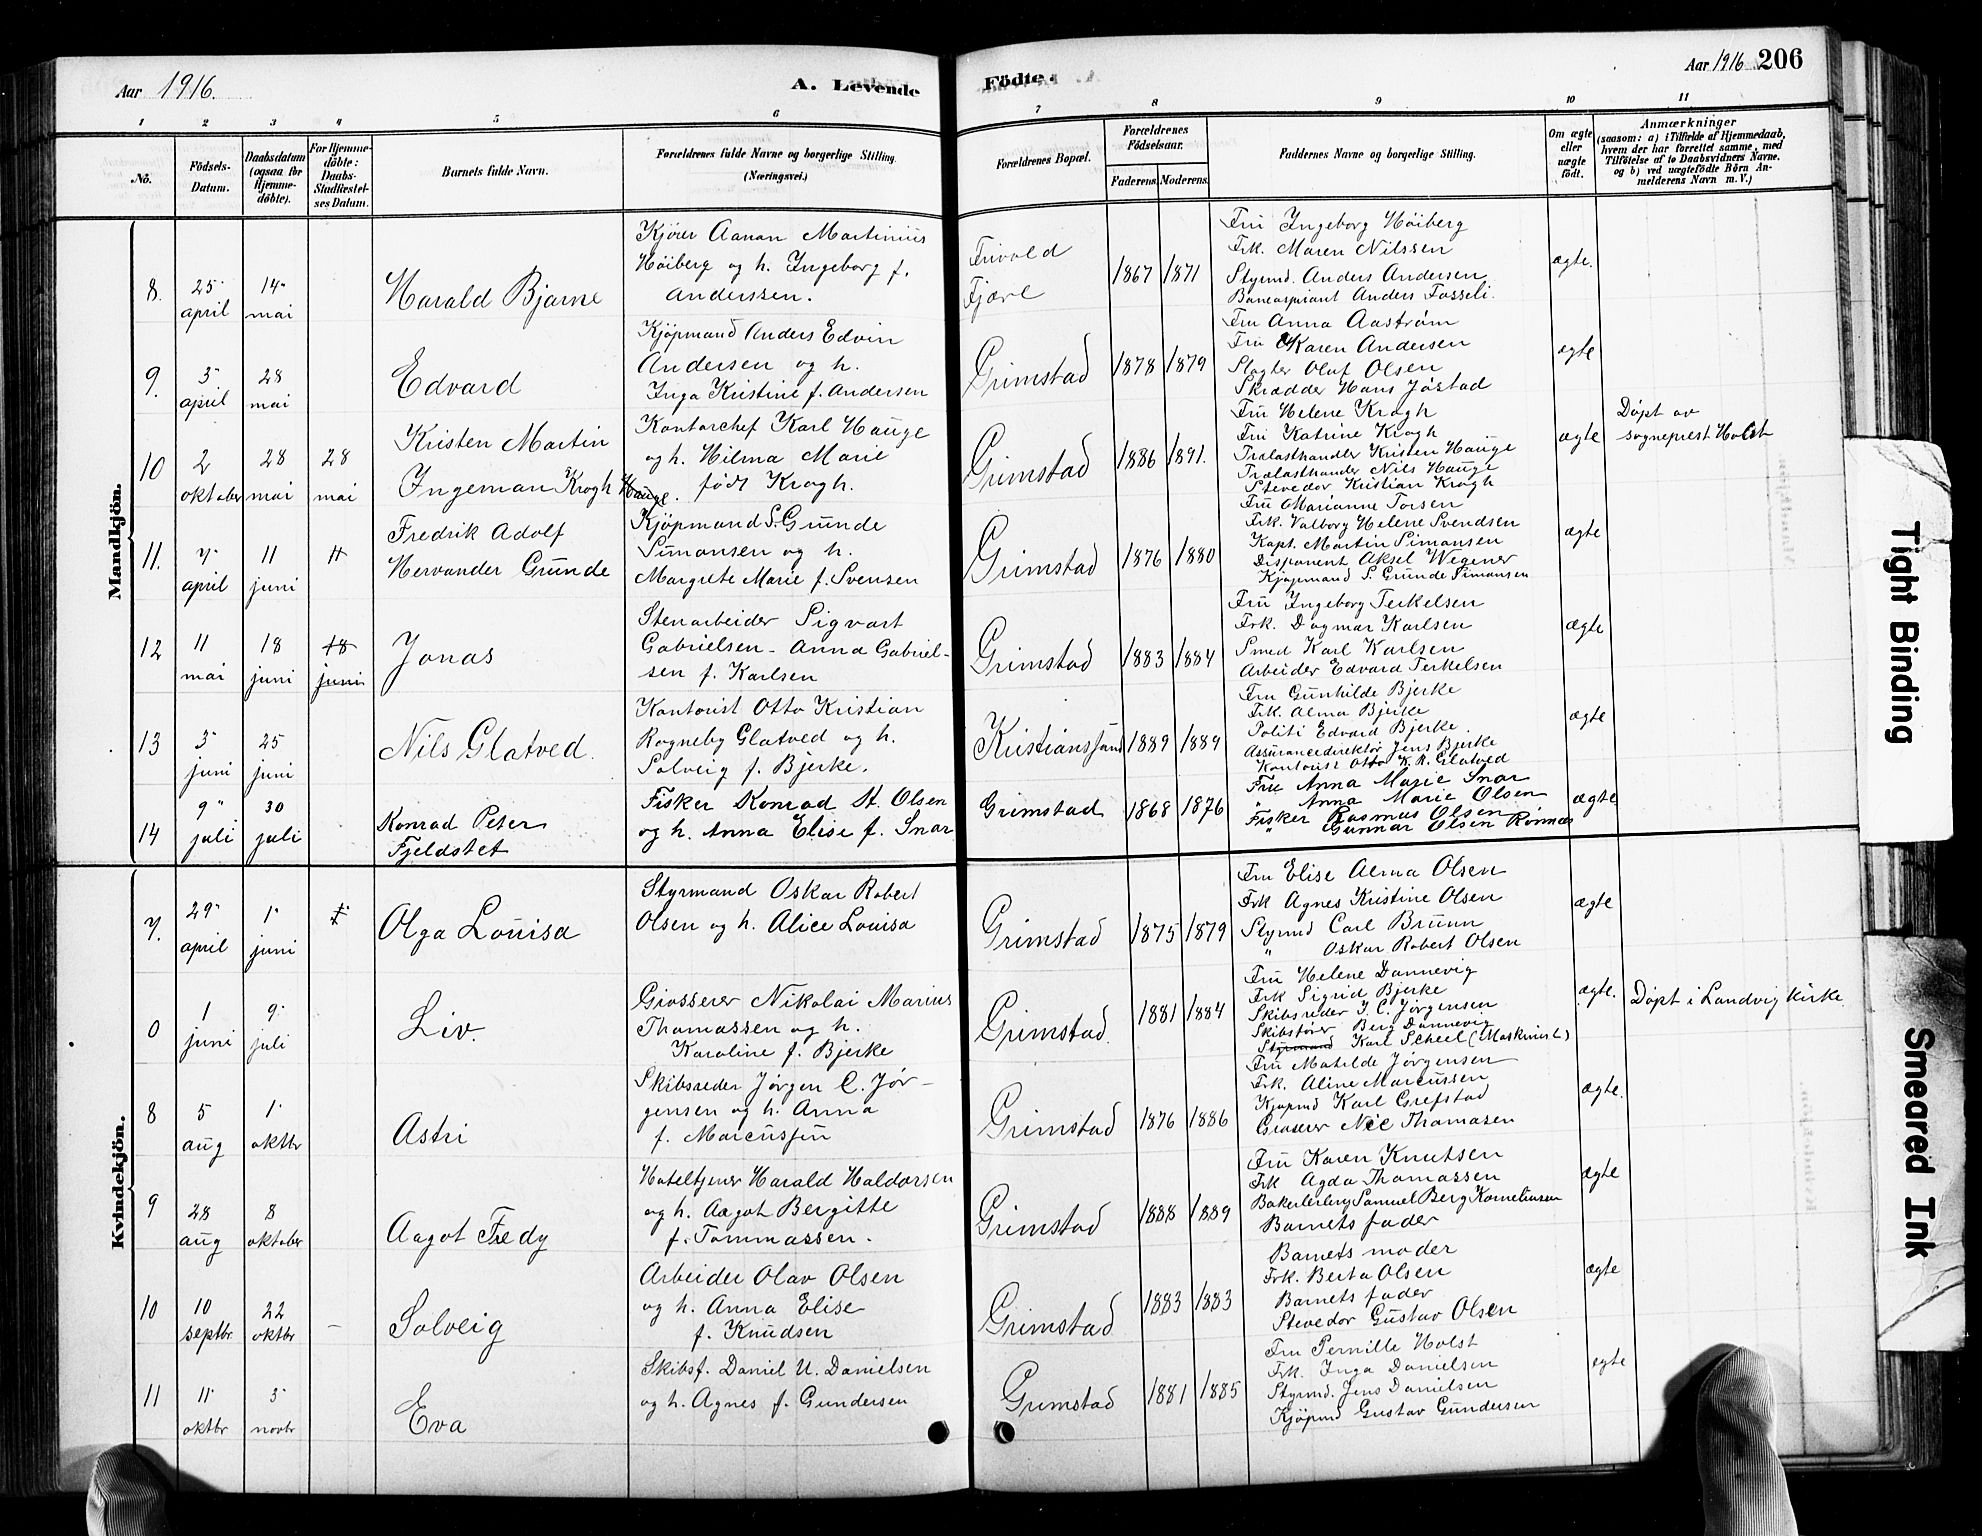 Aar 1916. A. Levende
Fødte. Aar 1916 206
1 2 3 4 5 6
7 8 9 10 11
No.
Födsels-Datum.
Daabsdatum (ogsaa for Hjemme-döbte).
For Hjemme-döbte: Daabs-Stadfæstel-ses Datum.
Barnets fulde Navn.
Forældrenes fulde Navne og borgerlige Stilling. (Næringsvei.)
Forældrenes Bopæl.
Forældrenes Födselsaar.
Faderens. Moderens.
Faddernes Navne og borgerlige Stilling.
Om ægte eller uægte födt.
Anmærkninger (saasom: a) i Tilfælde af Hjemmedaab, hvem der har forrettet samme, med Tilföielse af to Daabsvidners Navne, og b) ved uægtefödte Börn An-melderens Navn m. V.)
Mandkjön.
8. 25 april 14 mai
Harald Bjarne
Kjører Aanon Martinius
Høiberg og h. Ingeborg f.
Anderssen.
Frivold
Fjære
1867 1871
Fru Ingeborg Høiberg
Frk. Maren Nilssen
Styrmd. Anders Andersen
Baneaspirant Anders Fosseli.
ægte.
9. 3 april 28 mai
Edvard
Kjøpmand Anders Edvin
Andersen og h.
Inga Kristine f. Andersen
Grimstad
1878 1879
Fru Anna Aastrøm
Fru Karen Andersen
Slagter Oluf Olsen
Skrædder Hans Jøstad
ægte
10 2 oktober 28 mai 28 mai
Kristen Martin
Ingeman Krogh Hauge.
Kontorchef Karl Hauge
og h. Hilma Marie
født Krogh.
Grimstad
1886 1891.
Fru Helene Krogh
Fru Katrine Krogh
Trælasthandler Kristen Hauge
Trælasthandler Nils Hauge
Stevedor Kristian Krogh
ægte
Døpt av
sogneprest Holst
11. 7 april 11 juni 11
Fredrik Adolf
Hervander Grunde
Kjøpmand S. Grunde
Simonsen og h.
Margrete Marie f. Svensen
Grimstad
1876 1880
Fru Marianne Torsen
Frk. Valborg Helene Svendsen
Kapt. Martin Simonsen
Disponent Aksel Wegener
Kjøpmand S. Grunde Simonsen
ægte
12 11 mai 18 juni 18 juni
Jonas
Stenarbeider Sigvart
Gabrielsen - Anna Gabriel-
sen f. Karlsen
Grimstad
1883 1884
Fru Ingeborg Terkelsen
Frk. Dagmar Karlsen
Smed Karl Karlsen
Arbeider Edvard Terkelsen
ægte
13 3 juni 25 juni
Nils Glatved.
Kontorist Otto Kristian
Rogneby Glatved og h.
Solveig f. Bjerke.
Kristianssund
1889 1889
Fru Gunhilde Bjerke
Frk. Alma Bjerke
Politi Edvard Bjerke.
Assurancedirektør Jens Bjerke
Kontorist Otto K. R. Glatved
ægte
14 9 juli 30 juli
Konrad Peter
Fjeldstet
Fisker Konrad St. Olsen
og h. Anna Elise f. Snar
Grimstad
1868 1876
Fru Anna Marie Snar
" Anna Marie Olsen
Fisker Rasmus Olsen
" Gunnar Olsen Rønnes
ægte
Kvindekjön.
7. 29 april 1 juni
Olga Louisa
Styrmand Oskar Robert
Olsen og h. Alice Louisa
Grimstad
1875 1879
Fru Elise Alma Olsen
Frk Agnes Kristine Olsen
Styrmd Carl Bruun
" Oskar Robert Olsen
ægte
0 1 juni 9 juli
Liv.
Grosserer Nikolai Marius
Thomassen og h.
Karoline f. Bjerke
Grimstad.
1881 1884
Fru Helene Dannevig
Frk Sigrid Bjerke
Skibsreder J. C. Jørgensen
Skibsfører Berg Dannevig
Styrmand Karl Scheel (Maskinist)
ægte.
Døpt i Landvig kirke
8 5 aug 1 oktbr
Astri
Skibsreder Jørgen C. Jør-
gensen og h. Anna
f. Marcussen
Grimstad
1876 1886
Fru Matilde Jørgensen
Frk. Aline Marcussen
Kjøpmd Karl Grefstad
Grosserer Nic Thomasen
ægte.
9 28 aug 8 oktober
Aagot Fredy
Hoteltjener Harald Haldorsen
og h. Aagot Bergitte
f. Tommassen.
Grimstad
1888 1889
Fru Karen Knutsen
Frk Agda Thomassen
Bakerlerling Samuel Berg Korneliussen
Barnets fader
ægte
10 10 septbr 22 oktbr -
Solveig
Arbeider Olav Olsen
og h. Anna Elise
f. Knudsen
Grimstad
1883 1883
Barnets moder
Frk. Berta Olsen
Barnets fader
Stevedor Gustav Olsen
ægte
11 11 oktbr 3 novbr
Eva
Skibsf. Daniel U. Danielsen
og h. Agnes f. Gundersen
Grimstad
1881 1885
Fru Pernille Holst
Frk. Inga Danielsen
Styrmd. Jens Danielsen
Kjøpmd Gustav Gundersen
ægte
Tight Binding
Smeared Ink